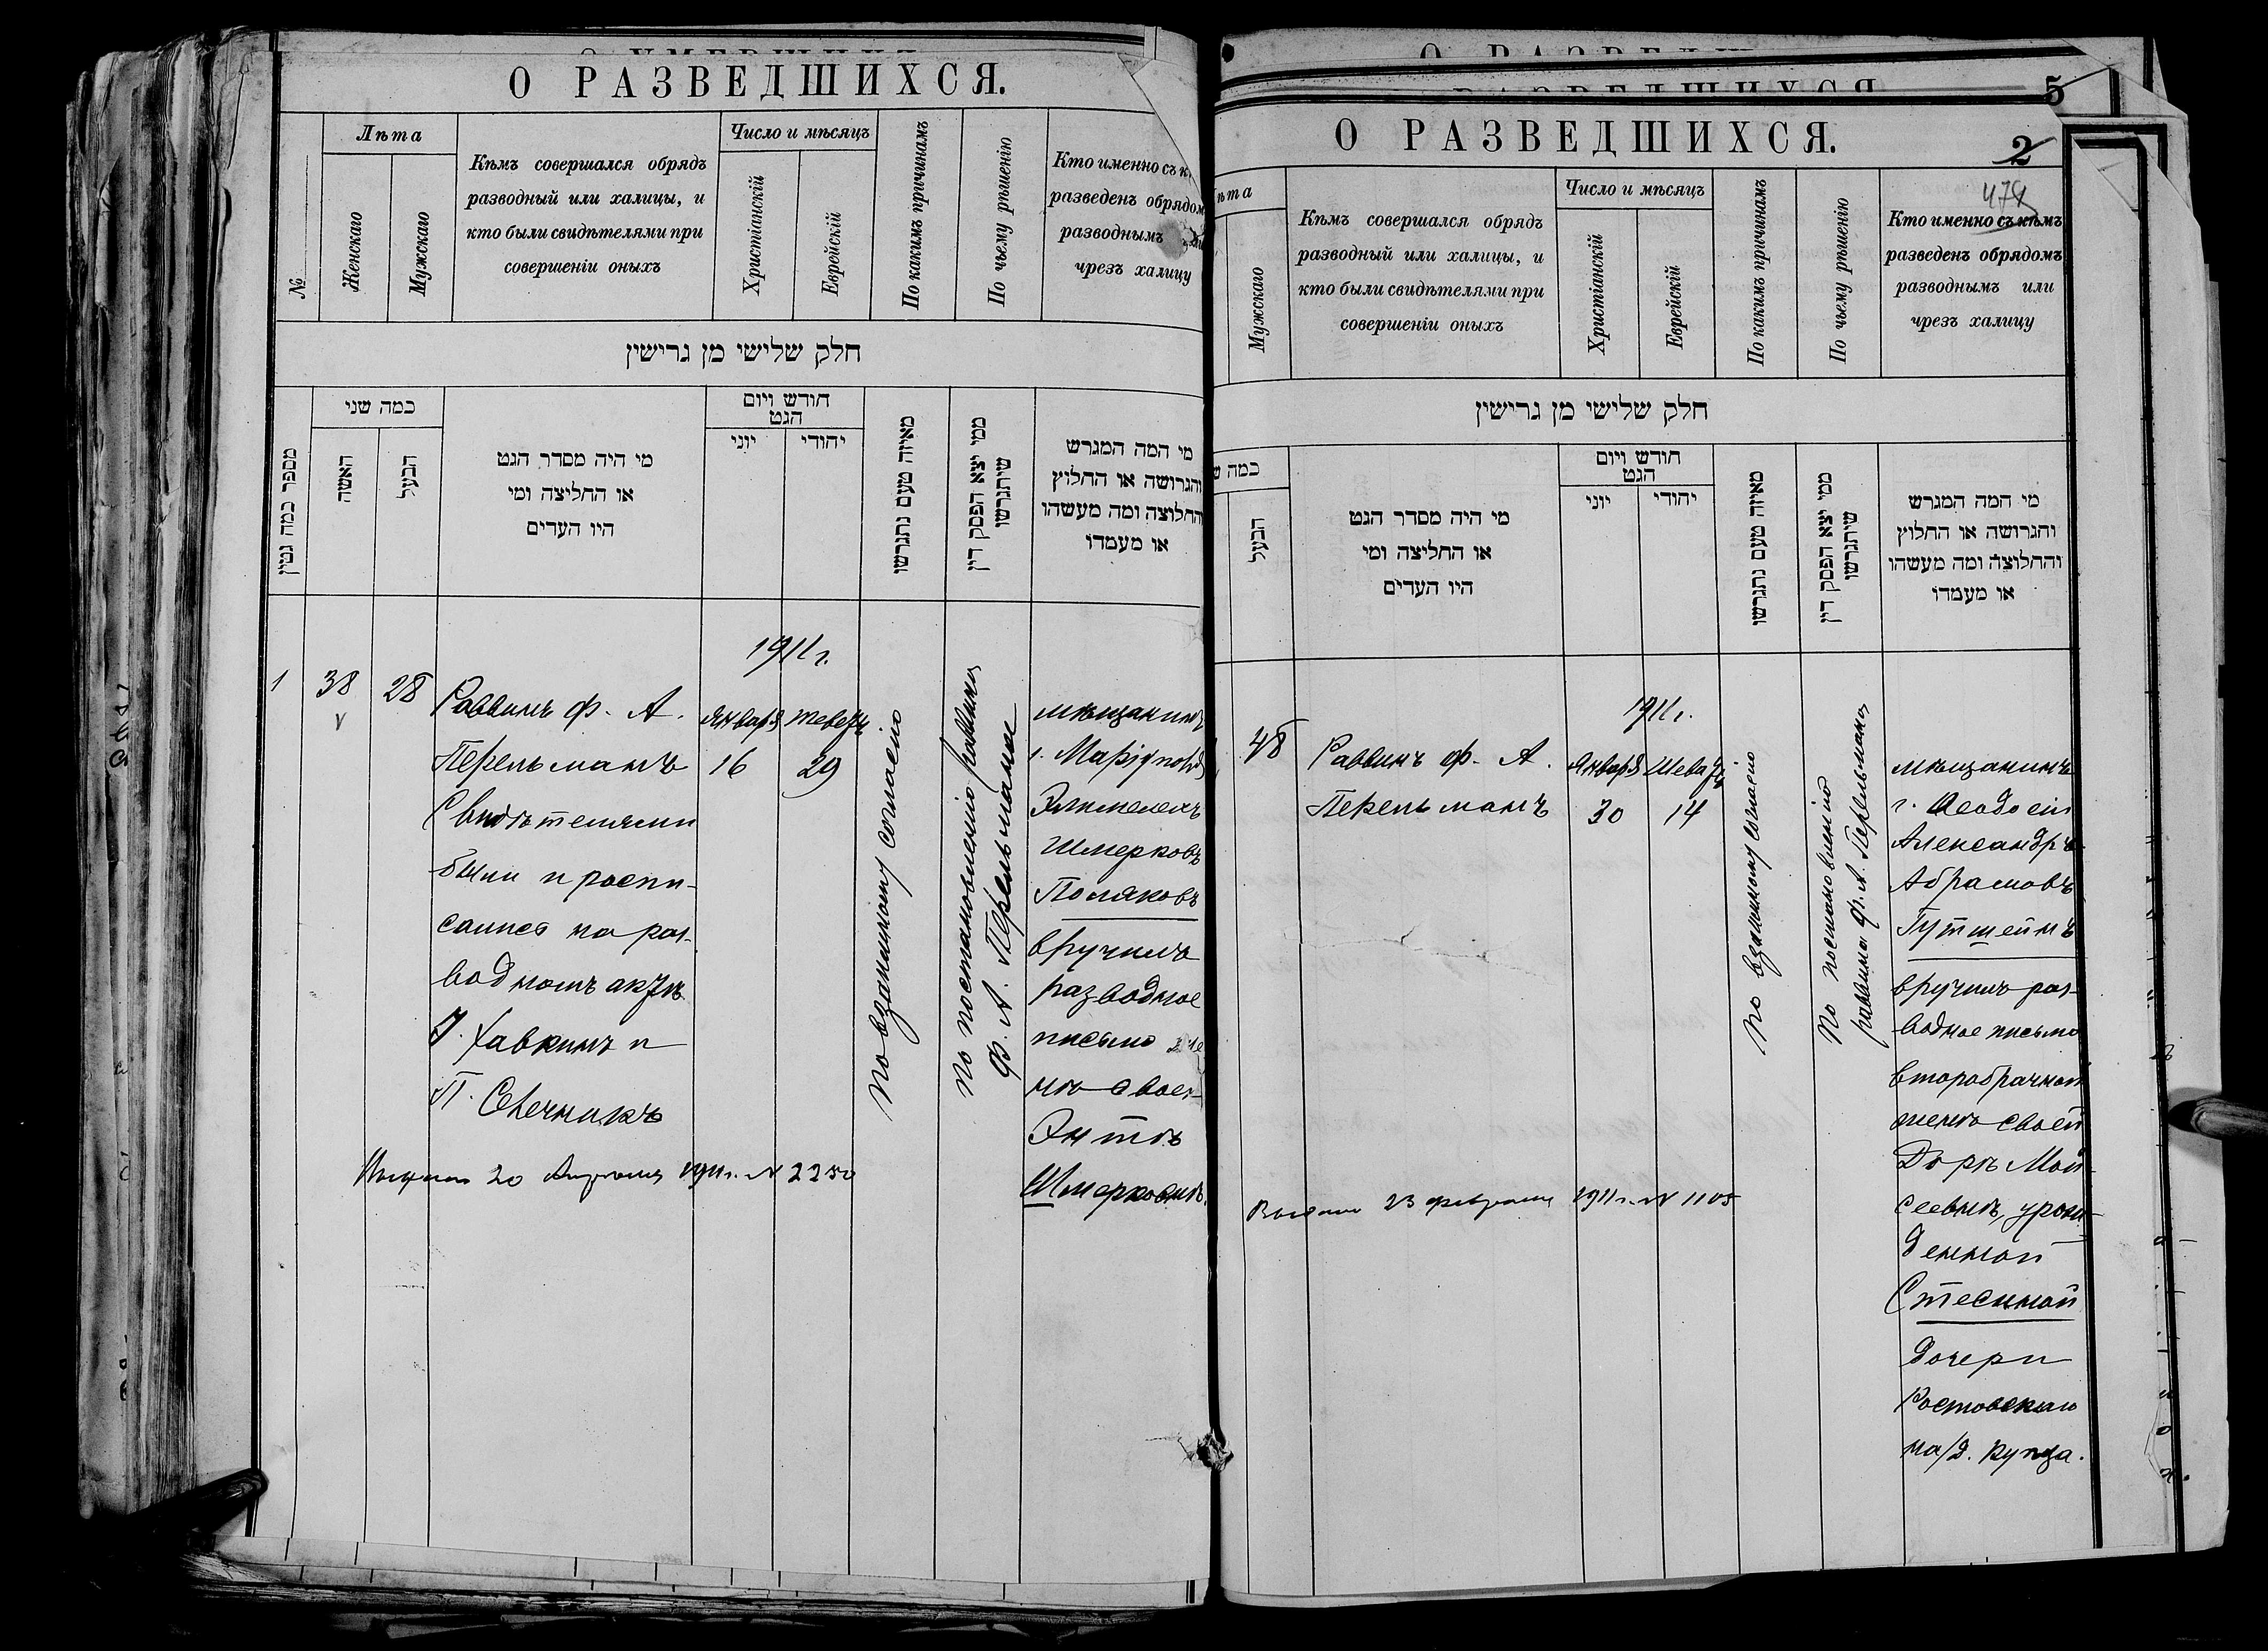 О РАЗВЕДШИХСЯ.
№
Лѣта
Женскаго
Мужскаго
Кѣмъ совершался обрядъ
разводный или халицы, и
кто были свидѣтелями при
совершеніи оныхъ
Число и мѣсяцъ
Христіанскій
Еврейскій
По какимъ причинамъ
По чьему рѣшенію
Кто именно съ
разведенъ обрядом
разводнымъ
чрезъ халицу
חלק שלישי מן גרישין
מספר כמה גטין
כמה שני
האשה
הבעל
מי היה מסדר הגט
או החליצה ומי
היו העדים
חודש ויום
הגט
יוני
יהודי
מאיזה טעם נתגרשו
ממי יצא הפסק דין
שיתגרשו
מי המה המגרש
והגרושה או החלוץ
והחלוצה ומה מעשהו
או מעמדו
1
38
28
Раввинъ Ф. А.
Перельманъ
Свидѣтелями
были и роспи-
сались на раз-
водномъ актѣ
Хавкинъ и
П. Свечникъ
1911 г.
Января
16
Тевезъ
29
По взаимному согласію
По постановленію раввина
Ф. А. Перельмана
мѣщанинъ
г. Маріупол
Элимелехъ
Шмерковъ
Поляковъ
вручилъ
разводное
письмо
нѣ свое
Энтѣ
Шмерковнѣ.
20 1911 г. № 2250
О РАЗВЕДШИХСЯ.
5
2
474
ѣта
Мужскаго
Кѣмъ совершался обрядъ
разводный или халицы, и
кто были свидѣтелями при
совершеніи оныхъ
Число и мѣсяцъ
Христіанскій
Еврейскій
По какимъ причинамъ
По чьему рѣшенію
Кто именно съ кѣмъ
разведенъ обрядомъ
разводнымъ или
чрезъ халицу
חלק שלישי מן גרישין
כמה ש
הבעל
מי היה מסדר הגט
או החליצה ומי
היו העדים
חודש ויום
הגט
יוני
יהודי
מאיזה טעם נתגרשו
ממי יצא הפסק דין
שיתגרשו
מי המה המגרש
והגרושה או החלוץ
והחלוצה ומה מעשהו
או מעמדו
48
Раввинъ Ф. А.
Перельманъ
1911 г.
Января
30
Шевазъ
14
По взаимному согласію
По постановленію
раввина Ф. А. Перельмана
мѣщанинъ
г. Ѳеодосіи
Александръ
Абрамовъ
Гутштейнъ
вручилъ раз-
водное письмо
второбрачной
женѣ своей
Дорѣ Мои-
сеевнѣ, урож-
денной
Стесиной
дочери
Ростовскаго
на/Д. купца.
23 февраля 1911 г. № 1105